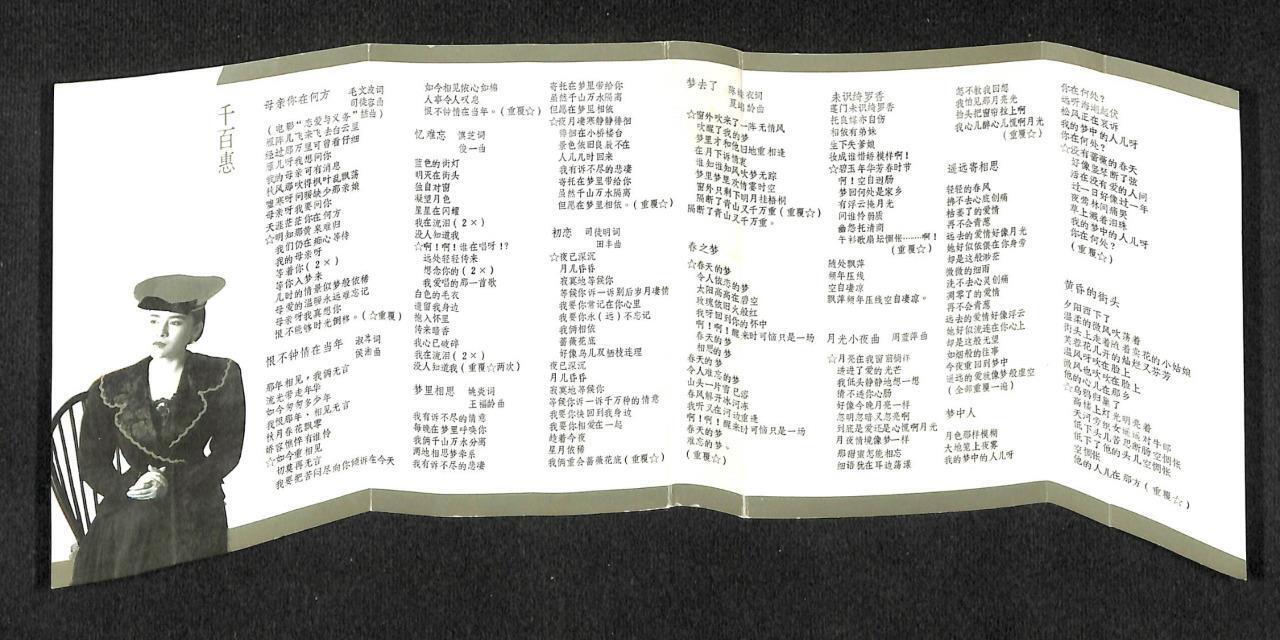 千百惠
母亲你在何方
毛文波词
司徒容曲
(电影“恋爱与义务”插曲)
雁阵儿飞来飞去白云里
经过那万里可曾看仔细
雁儿呀我想问你
我的母亲可有消息
秋风那吹得枫叶乱飘荡
嘘寒呀问暖缺少那亲娘
母亲呀我要问你
天涯茫茫你在何方
☆明知那黄泉难归
我们仍在痴心等待
我的母亲呀
等着你(2×)
等你入梦来
儿时的情景似梦般依稀
母爱的温暖永远难忘记
母亲呀我真想你
恨不能够时光倒移。(☆重覆)
恨不钟情在当年
侯湘曲
那年相见，我俩无言
流光带走年华
如今匆匆多少年
我恨那年，相见无言
秋月春花飘零
娇容憔悴有谁怜
☆如今重相见
切莫再无言
我要把苦闷尽向你倾诉在今天
如今相见侬心如棉
人事令人叹息
恨不钟情在当年。(重覆☆)
忆难忘 慎芝词
俊一曲
蓝色的街灯
明灭在街头
独自对窗
凝望月色
星星在闪耀
我在流泪(2×)
没人知道我
☆啊!啊!谁在唱呀!?
远处轻轻传来
想念你的(2×)
我爱唱的那一首歌
白色的毛衣
遗留我身边
抱入怀里
传来暗香
我心已破碎
我在流泪(2×)
没人知道我(重覆☆两次)
梦里相思 姚炎词
王福龄曲
我有诉不尽的情意
每晚在梦里呼唤你
我俩千山万水分离
两地相思梦牵系
我有诉不尽的悲凄
寄托在梦里带给你
虽然千山万水隔离
但愿在梦里相依
☆夜月凄寒静静徘徊
徘徊在小桥楼台
景色依旧良辰不在
人儿几时回来
我有诉不尽的悲凄
寄托在梦里带给你
虽然千山万水隔离
但愿在梦里相依。(重覆☆)
初恋 司徒明词
田丰曲
☆夜已深沉
月儿昏昏
寂寞地等候
等候你诉一诉别后岁月凄情
我要你常记在你心里
我要你永(远)不忘记
我俩相依
蔷薇花底
好像鸟儿双栖枝连理
夜已深沉
月儿昏昏
寂寞地等候你
等候你诉一诉千万种的情意
我要你快回到我身边
我要你相爱在一起
趁着今夜
星月依稀
我俩重会蔷薇花底(重覆☆)
梦去了 陈蝶衣词
夏崎龄曲
☆窗外吹来了一阵无情风
吹醒了我的梦
梦里才和他旧地重相逢
在月下诉情衷
谁知谁知风吹梦无踪
梦里梦里欢情霎时空
窗外只剩下明月挂梧桐
隔断了青山又千万重(重覆☆)
隔断了青山又千万重。
春之梦
☆春天的梦
令人依恋的梦
太阳高高在碧空
玫瑰依旧火般红
我呀回到你的怀中
啊!啊!醒来时可恼只是一场
春天的梦
相思的梦
春天的梦
令人难忘的梦
山头一片雪已溶
春风解开冰河冻
我听又在河边重逢
啊!啊!醒来时可恼只是一场
春天的梦
难忘的梦。
(重覆☆)
未识绮罗香
蓬门未识绮罗香
托良媒亦自伤
相依有弟妹
生下失爹娘
妆成谁惜娇模样啊!
☆碧玉年华芳春时节
啊!空自迴肠
梦回何处是家乡
有浮云掩月光
问谁怜弱质
幽怨托清商
午衫歌扇坛惆怅………啊!
(重覆☆)
随处飘萍
频年压线
空自凄凉
飘萍频年压线空自凄凉。
月光小夜曲 周蓝萍曲
☆月亮在我窗前徜徉
透进了爱的光芒
我低头静静地想一想
猜不透你心肠
好像今晚月亮一样
忽明忽暗又忽亮啊
到底是爱还是心慌啊月光
月夜情境像梦一样
那甜蜜怎能相忘
细语犹在耳边荡漾
怎不教我回想
我怕见那月亮光
抬头把窗帘拉上啊
我心儿醉心儿慌啊月光
(重覆☆)
遥远寄相思
轻轻的春风
拂不去心底创痛
枯萎了的爱情
再不会青葱
远去的爱情好像月光
她好似依偎在你身旁
却是这般渺茫
微微的细雨
洗不去心灵创痛
凋零了的爱情
再不会青葱
远去的爱情好像浮云
她好似流连在你心上
却是这般无望
如烟般的往事
今夜重回到梦中
遥远的爱就像梦般虚空
(全部重覆一遍)
梦中人
月色那样模糊
大地笼上夜雾
我的梦中的人儿呀
你在何处?
远听海潮起伏
松风正在哀诉
我的梦中的人儿呀
你在何处?
☆没有蔷薇的春天
好像竖琴断了弦
活在没有爱的人间
过一日好像过一年
夜莺林间痛哭
草上溅着泪珠
我的梦中的人儿呀
你在何处?
(重覆☆)
黄昏的街头
夕阳西下了
温柔的微风吹荡着
街头上走着嚷着卖花的小姑姐
芙蓉花儿开的灿烂又芬芳
温风呀吹在脸上
微风也吹在脸上
他的心儿在那乡
☆乌鸦归巢了
高楼上灯光明亮着
天河旁织女遥遥对牛郎
低下头儿苦思断肠空惆怅
低下了他的头儿空惆怅
空惆怅
他的人儿在那方(重覆☆)